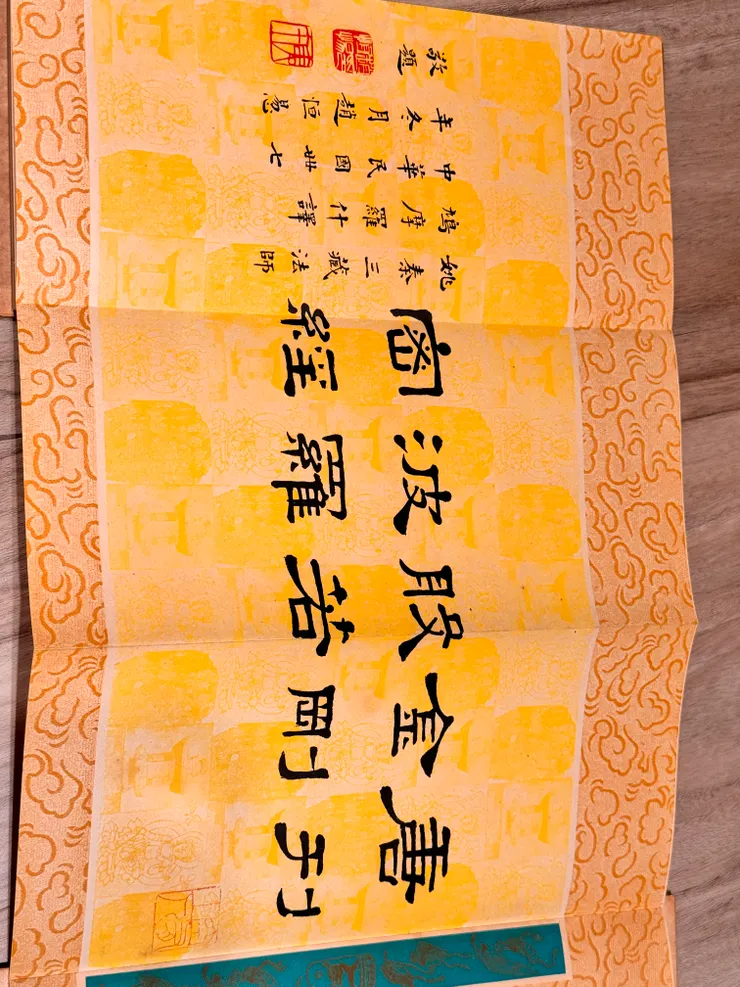 唐刊
金剛
般若
波羅
密經
姚秦三藏法師
鳩摩羅什譯
中華民國卅七
年冬月趙恒惖
敬題